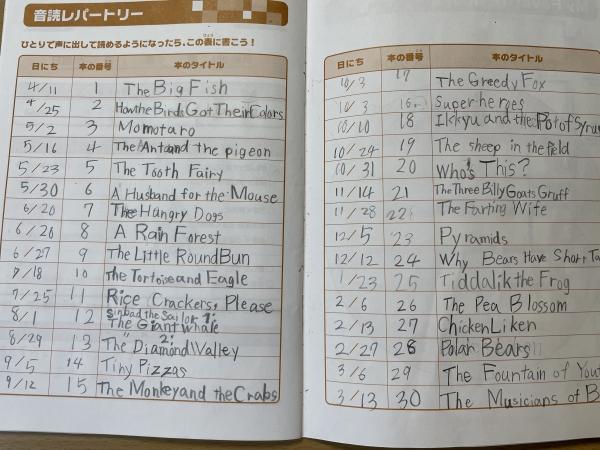 音読レパートリー
ひとりで声に出して読めるようになったら、この表に書こう！
日にち 本の番号 本のタイトル
4/11 1 The Big Fish
4/25 2 How the Birds Got Their Colors
5/2 3 Momotaro
5/16 4 The Ant and the pigeon
5/23 5 The Tooth Fairy
5/30 6 A Husband for the Mouse
6/20 7 The Hungry Dogs
6/20 8 A Rain Forest
6/27 9 The Little Round Bun
7/18 10 The Tortoise and Eagle
7/25 11 Rice Crackers, Please
8/1 12 Sinbad the Sailor 1:
The Giant whale
8/29 13 The " 2: Diamond Valley
9/5 14 Tiny Pizzas
9/12 15 The Monkey and the Crabs
日にち 本の番号 本のタイトル
10/3 17 The Greedy Fox
10/3 16 Superheroes
10/10 18 Ikkyu and the Pot of Syru
10/24 19 The sheep in the field
10/31 20 Who's This?
11/14 21 The Three Billy Goats Gruff
11/28 22 The Farting Wife
12/5 23 Pyramids
12/12 24 Why Bears Have Short Ta
1/23 25 Tiddalik the Frog
2/6 26 The Pea Blossom
2/13 27 Chicken Liken
2/27 28 Polar Bears
3/6 29 The Fountain of You
3/13 30 The Musicians of B